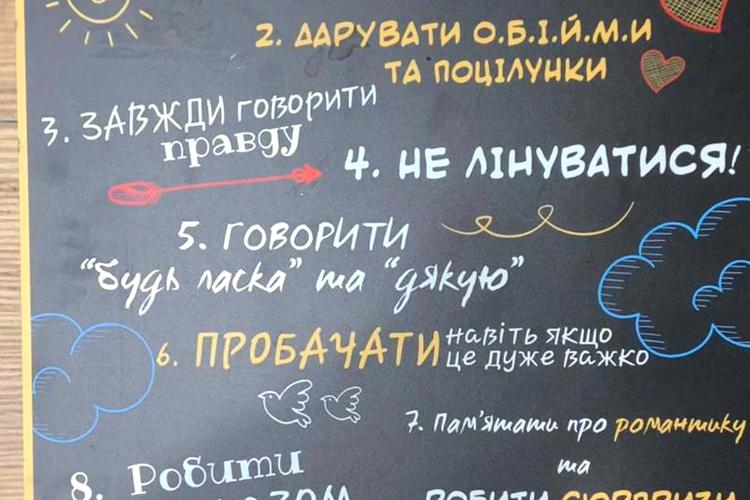 2. ДАРУВАТИ О.Б.І.Й.М.И
ТА ПОЦІЛУНКИ
3. ЗАВЖДИ ГОВОРИТИ
правду
4. НЕ ЛІНУВАТИСЯ!
5. ГОВОРИТИ
"будь ласка" та "дякую"
6. ПРОБАЧАТИ навіть якщо
це дуже важко
7. Пам'ятати про романтику
та
8. Робити